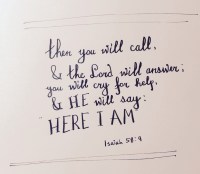 then you will call,
& the Lord will answer;
you will cry for help,
& HE will say:
HERE I AM
Isaiah 58:9